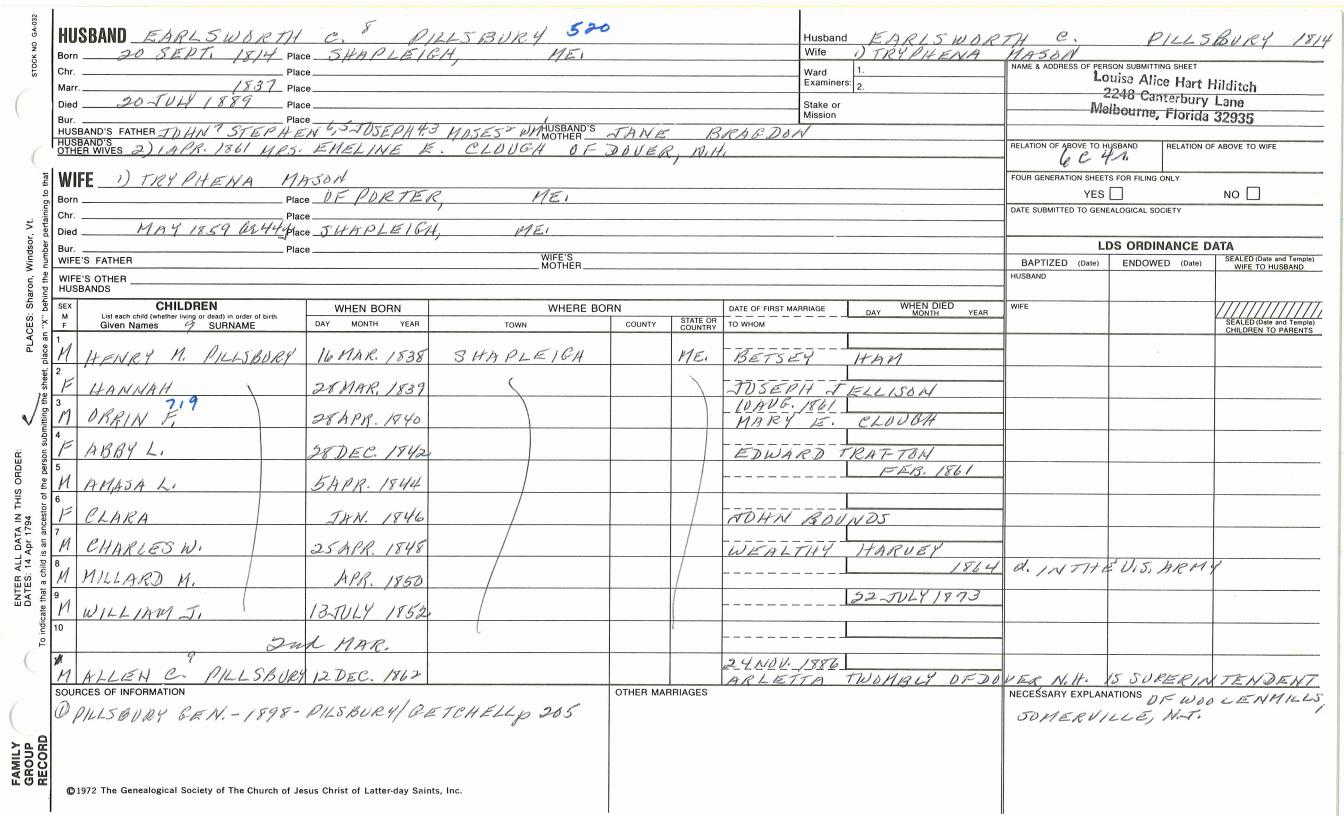 STOCK NO. GA-032
HUSBAND EARLSWORTH C. 8 PILLSBURY 520
Born 20 SEPT. 1814 Place SHAPLEIGH, ME.
Chr. Place
Marr. 1837 Place
Died 20 JULY 1889 Place
Bur. Place
HUSBAND'S FATHER JOHN 7 STEPHEN 6,5 JOSEPH 4,3 MOSES 2 WM 1 HUSBAND'S MOTHER JANE BRAGDON
HUSBAND'S OTHER WIVES 2) 1 APR. 1861 MRS. EMELINE E. CLOUGH OF DOVER, N.H.
Husband EARLSWORTH C. PILLSBURY 1814
Wife 1) TRYPHENA MASON
Ward Examiners: 1. 2.
Stake or Mission
NAME & ADDRESS OF PERSON SUBMITTING SHEET
Louise Alice Hart Hilditch
2248 Canterbury Lane
Melbourne, Florida 32935
RELATION OF ABOVE TO HUSBAND RELATION OF ABOVE TO WIFE
6 C 4 r.
FOUR GENERATION SHEETS FOR FILING ONLY
YES NO
DATE SUBMITTED TO GENEALOGICAL SOCIETY
WIFE 1) TRYPHENA MASON
Born Place OF PORTER, ME.
Chr. Place
Died MAY 1859 Place SHAPLEIGH, ME.
Bur. Place
WIFE'S FATHER WIFE'S MOTHER
WIFE'S OTHER HUSBANDS
LDS ORDINANCE DATA
BAPTIZED (Date) ENDOWED (Date) SEALED (Date and Temple) WIFE TO HUSBAND
HUSBAND
WIFE
SEALED (Date and Temple) CHILDREN TO PARENTS
SEX M F CHILDREN WHEN BORN WHERE BORN DATE OF FIRST MARRIAGE WHEN DIED
List each child (whether living or dead) in order of birth
Given Names 9 SURNAME DAY MONTH YEAR TOWN COUNTY STATE OR COUNTRY TO WHOM DAY MONTH YEAR
1 M HENRY M. PILLSBURY 16 MAR. 1838 SHAPLEIGH ME. BETSEY HAM
2 F HANNAH 28 MAR. 1839 JOSEPH JELLISON
3 M ORRIN F. 719 28 APR. 1840 10 AUG. 1861 MARY E. CLOUGH
4 F ABBY L. 28 DEC. 1842 EDWARD TRAFTON
5 M AMASA L. 5 APR. 1844 FEB. 1861
6 F CLARA JAN. 1846 JOHN BOUNDS
7 M CHARLES W. 25 APR. 1848 WEALTHY HARVEY
8 M MILLARD M. APR. 1850 1864 d. IN THE U.S. ARMY
9 M WILLIAM J. 13 JULY 1852 22 JULY 1873
10 2nd MAR.
M ALLEN C. 9 PILLSBURY 12 DEC. 1862 24 NOV. 1886 ARLETTA TWOMBLY OF DOVER N.H. IS SUPERINTENDENT
SOURCES OF INFORMATION OTHER MARRIAGES NECESSARY EXPLANATIONS OF WOOLEN MILLS,
SOMERVILLE, N.J.
① PILLSBURY GEN.-1898- PILSBURY/GETCHELL p 205
©1972 The Genealogical Society of The Church of Jesus Christ of Latter-day Saints, Inc.
ENTER ALL DATA IN THIS ORDER: PLACES: Sharon, Windsor, Vt.
DATES: 14 Apr 1794
To indicate that a child is an ancestor of the person submitting the sheet, place an "X" behind the number pertaining to that
FAMILY
GROUP
RECORD